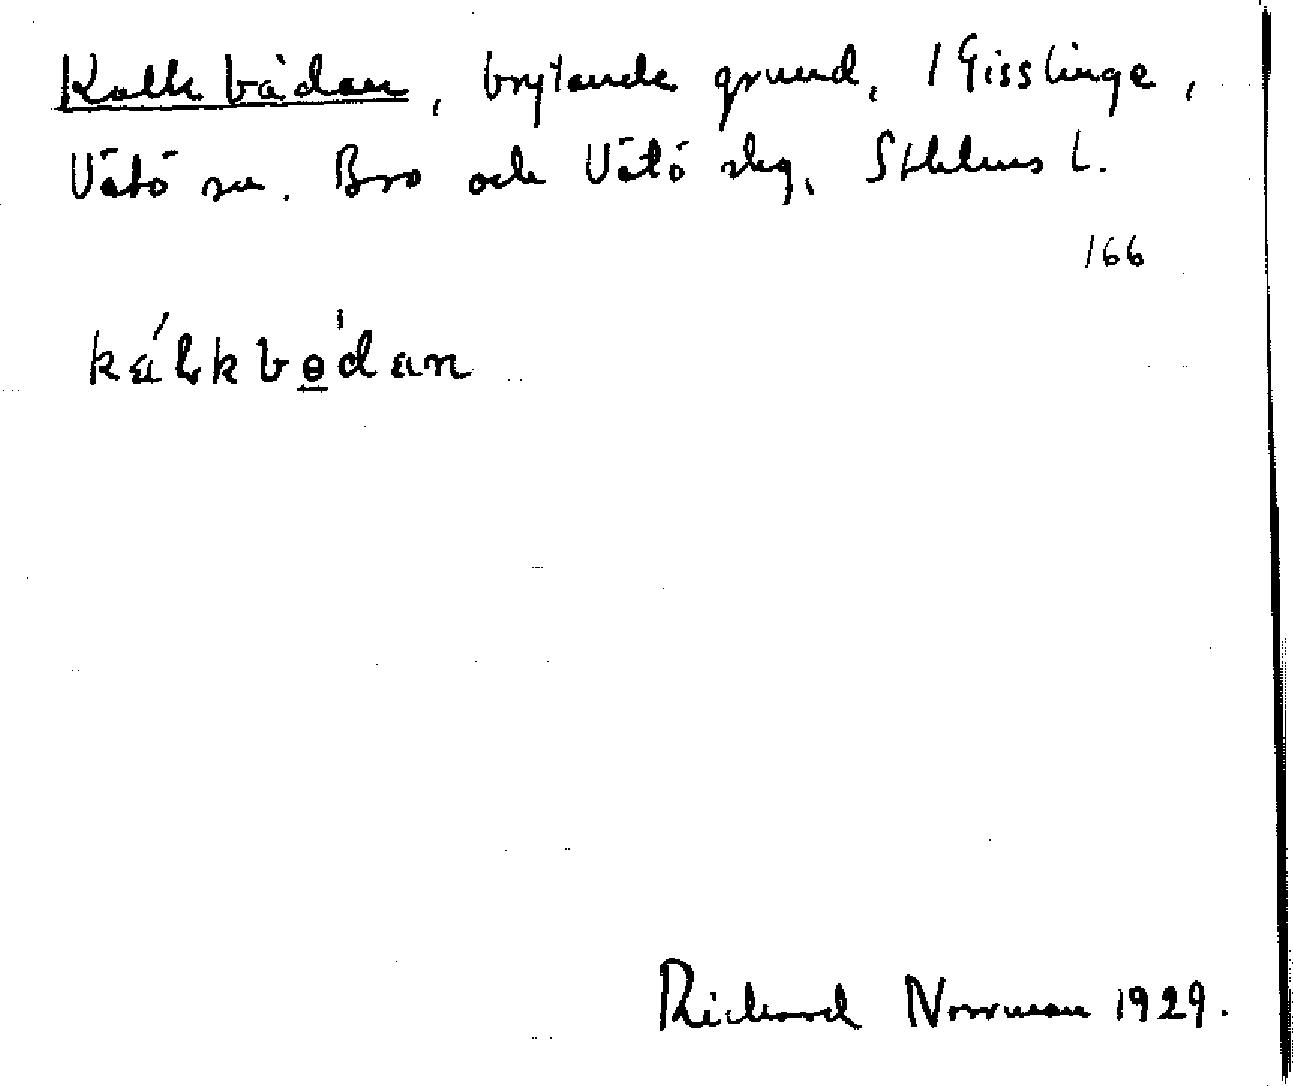 Kalkbådan, brytande grund, / Gisslinge,
Vätö sn. Bro och Vätö skg, Sthlms L.
166
Richard Norrman 1929.